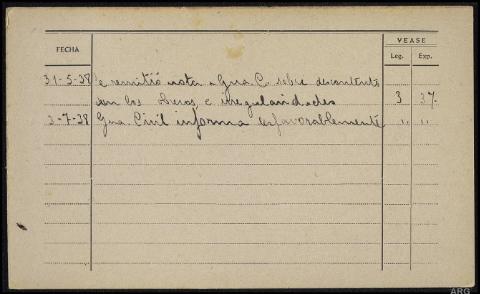 FECHA
VEASE
Leg. Exp.
31-5-38 Se remitió nota a Gua. C. sobre descontento
con los obreros e irregularidades 3 37.
3-7-38 Gua Civil informa desfavorablemente " "
ARG